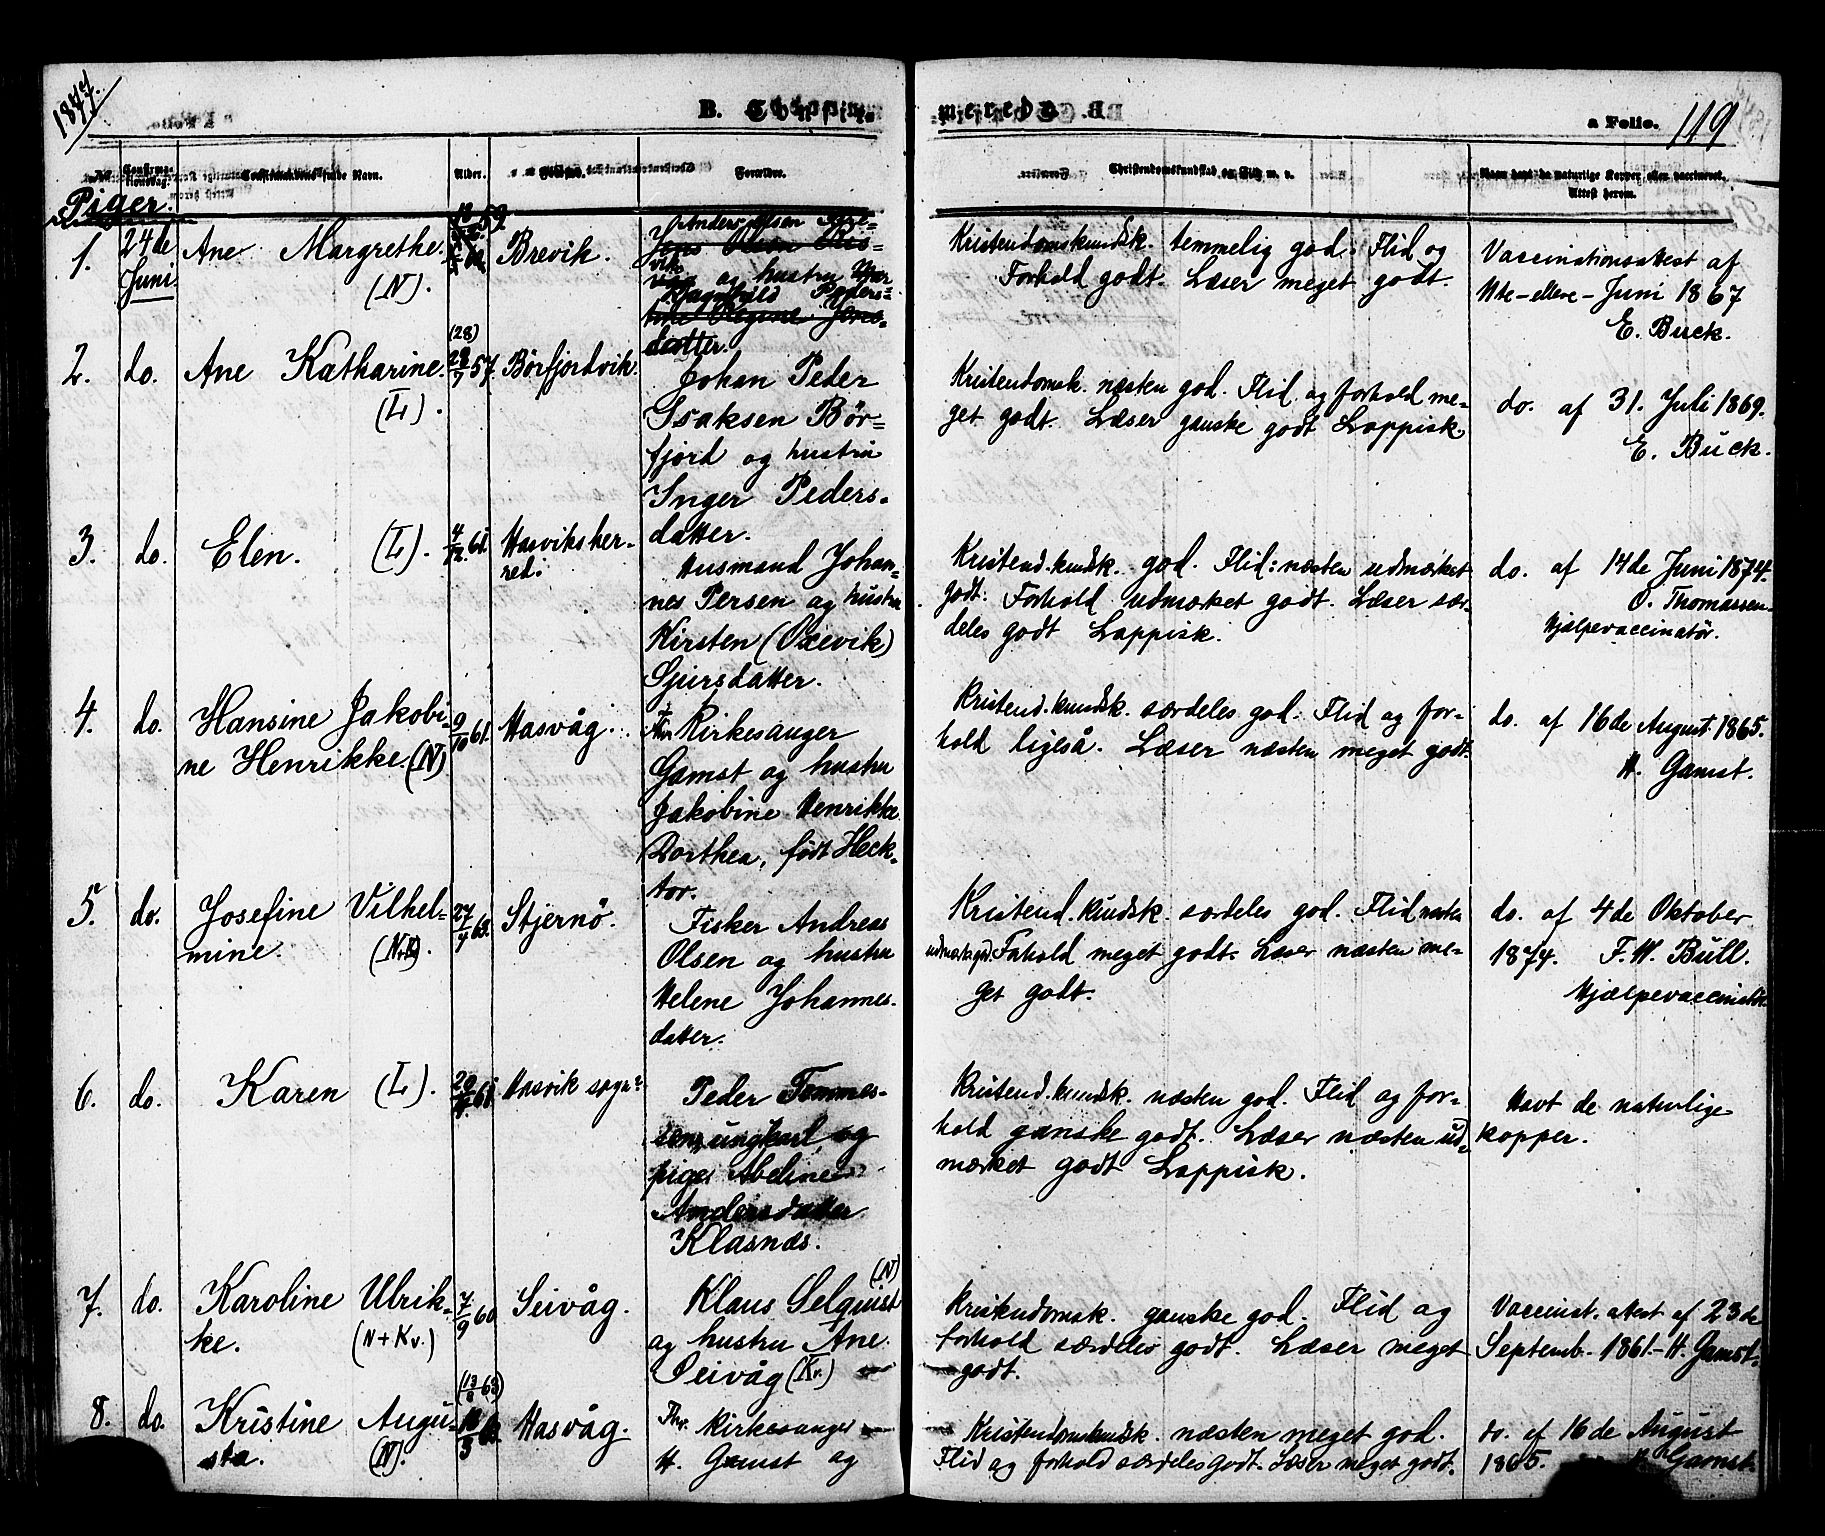 1877.
B. Confirmerede.
a Folio. 119
No. Confirmationsdag. Confirmandens fulde Navn. Alder. Fødested. Forældre. Christendomskundskab og Flid m. v. Naar havt de naturlige Kopper eller vaccineret. Attest herom.
Piger.
1. 24de Juni. Ane Margrethe. (N). Brevik.
og hustru
datter.
Kristendomskundsk. temmelig god. Flid og
Forhold godt. Læser meget godt.
Vaccinationsattest af
11te-elleve-Juni 1867
E. Buck.
2. do. Ane Katharine. (L). (28) 29/7 57. Børfjordvik.
Johan Peder
Isaksen Bør-
fjord og hustru
Inger Peders-
datter.
Kristendomsk. næsten god. Flid og forhold me-
get godt. Læser ganske godt Lappisk.
do. af 31. Juli 1869.
E. Buck.
3. do. Elen. (L). 4/12 61. Hasviksher-
red.
Husmand Johan-
nes Persen og hustru
Kirsten (Oxevik)
Sjursdatter.
Kristend.kundsk. god. Flid: næsten udmærket
godt. Forhold udmærket godt. Læser sær-
deles godt Lappisk.
do. af 14de Juni 1874.
O. Thomassen
Hjælpevaccinatör.
4. do. Hansine Jakobi-
ne Henrikke. (N) 9/10 61. Hasvåg.
Kirkesanger
Gamst og hustru
Jakobine Henrikke
Dorthea, født Heck-
tor.
Kristend.kundsk. særdeles god. Flid og for-
hold ligeså. Læser næsten meget godt.
do. af 16de August 1865.
H. Gamst.
5. do. Josefine Vilhel-
mine. 27/4 63. Stjernö.
Fisker Andreas
Olsen og hustru
Helene Johannes-
datter.
Kristend.kundsk. særdeles god. Flid næsten
udmærket god. Forhold meget godt. Læser næsten me-
get godt.
do. af 4de Oktober
1874. F. W. Bull.
Hjælpevaccinatör.
6. do. Karen (L). Hasvik sogn?
Peder Tommes-
sen, ungkarl og
pige Abeline
Andersdatter
Klasnæs.
Kristend.kundsk. næsten god. Flid og for-
hold ganske godt. Læser næsten ud-
mærket godt Lappisk.
Havt de naturlige
kopper.
7. do. Karoline Ulrik-
ke. (N+Kv.) 7/9 60. Seivåg.
Klaus Selquist (N)
og hustru Ane
Seivåg (Kv.)
Kristendomsk. ganske god. Flid og
forhold særdeles godt. Læser meget
godt.
Vaccinat. attest af 23de
Septemb. 1861 - H. Gamst.
8. do. Kristine Augu-
sta. (N). (13/3 63) Hasvåg.
Fhv. kirkesanger
H. Gamst og
Kristendomskundsk. næsten meget god.
Flid og forhold særdeles godt. Læser meget godt.
do. af 16de August
1865. H. Gamst.